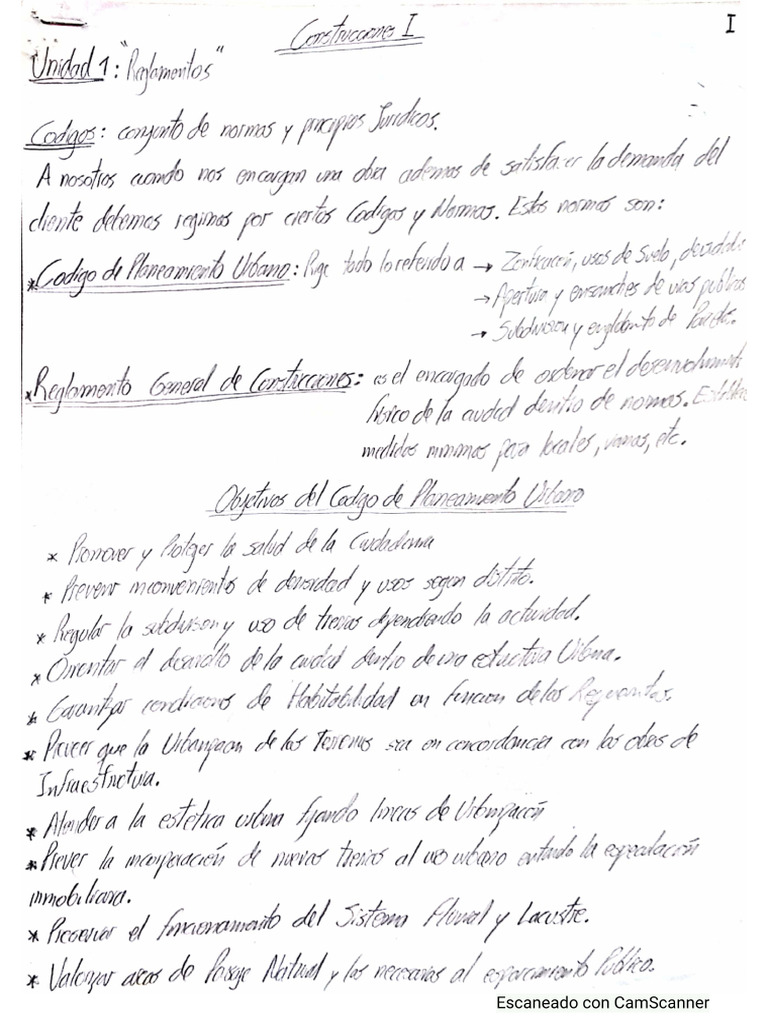 Construcciones I
I
Unidad 1: "Reglamentos"
Codigos: conjunto de normas y principios Juridicos.
A nosotros cuando nos encargan una obra ademas de satisfacer la demanda del
cliente debemos regirnos por ciertos Codigos y Normas. Estas normas son:
* Codigo de Planeamiento Urbano: Rige todo lo referido a → Zonificación, usos de Suelo, densidades
→ Apertura y ensanches de vias publicas
→ Subdivision y englobamiento de Parcelas.
* Reglamento General de Construcciones: es el encargado de ordenar el desenvolvimiento
fisico de la ciudad dentro de normas. Establece
medidas minimas para locales, vanos, etc.
Objetivos del Codigo de Planeamiento Urbano
* Promover y Proteger la salud de la Ciudadania
* Prevenir inconvenientes de densidad y usos segun distrito.
* Regular la subdivision y uso de tierras dependiendo la actividad.
* Orientar el desarrollo de la ciudad dentro de una estructura Urbana.
* Garantizar condiciones de Habitabilidad en funcion de los
* Preveer que la Urbanizacion de los Terrenos sea en concordancia con las obras de
Infraestructura.
* Atender a la estética urbana fijando lineas de Urbanización
* Prever la incorporación de nuevas tierras al uso urbano evitando la especulación
inmobiliaria.
* Preservar el funcionamiento del Sistema Fluvial y Lacustre.
* Valorizar areas de Paisaje Natural y las necesarias al esparcimiento Público.
Escaneado con CamScanner